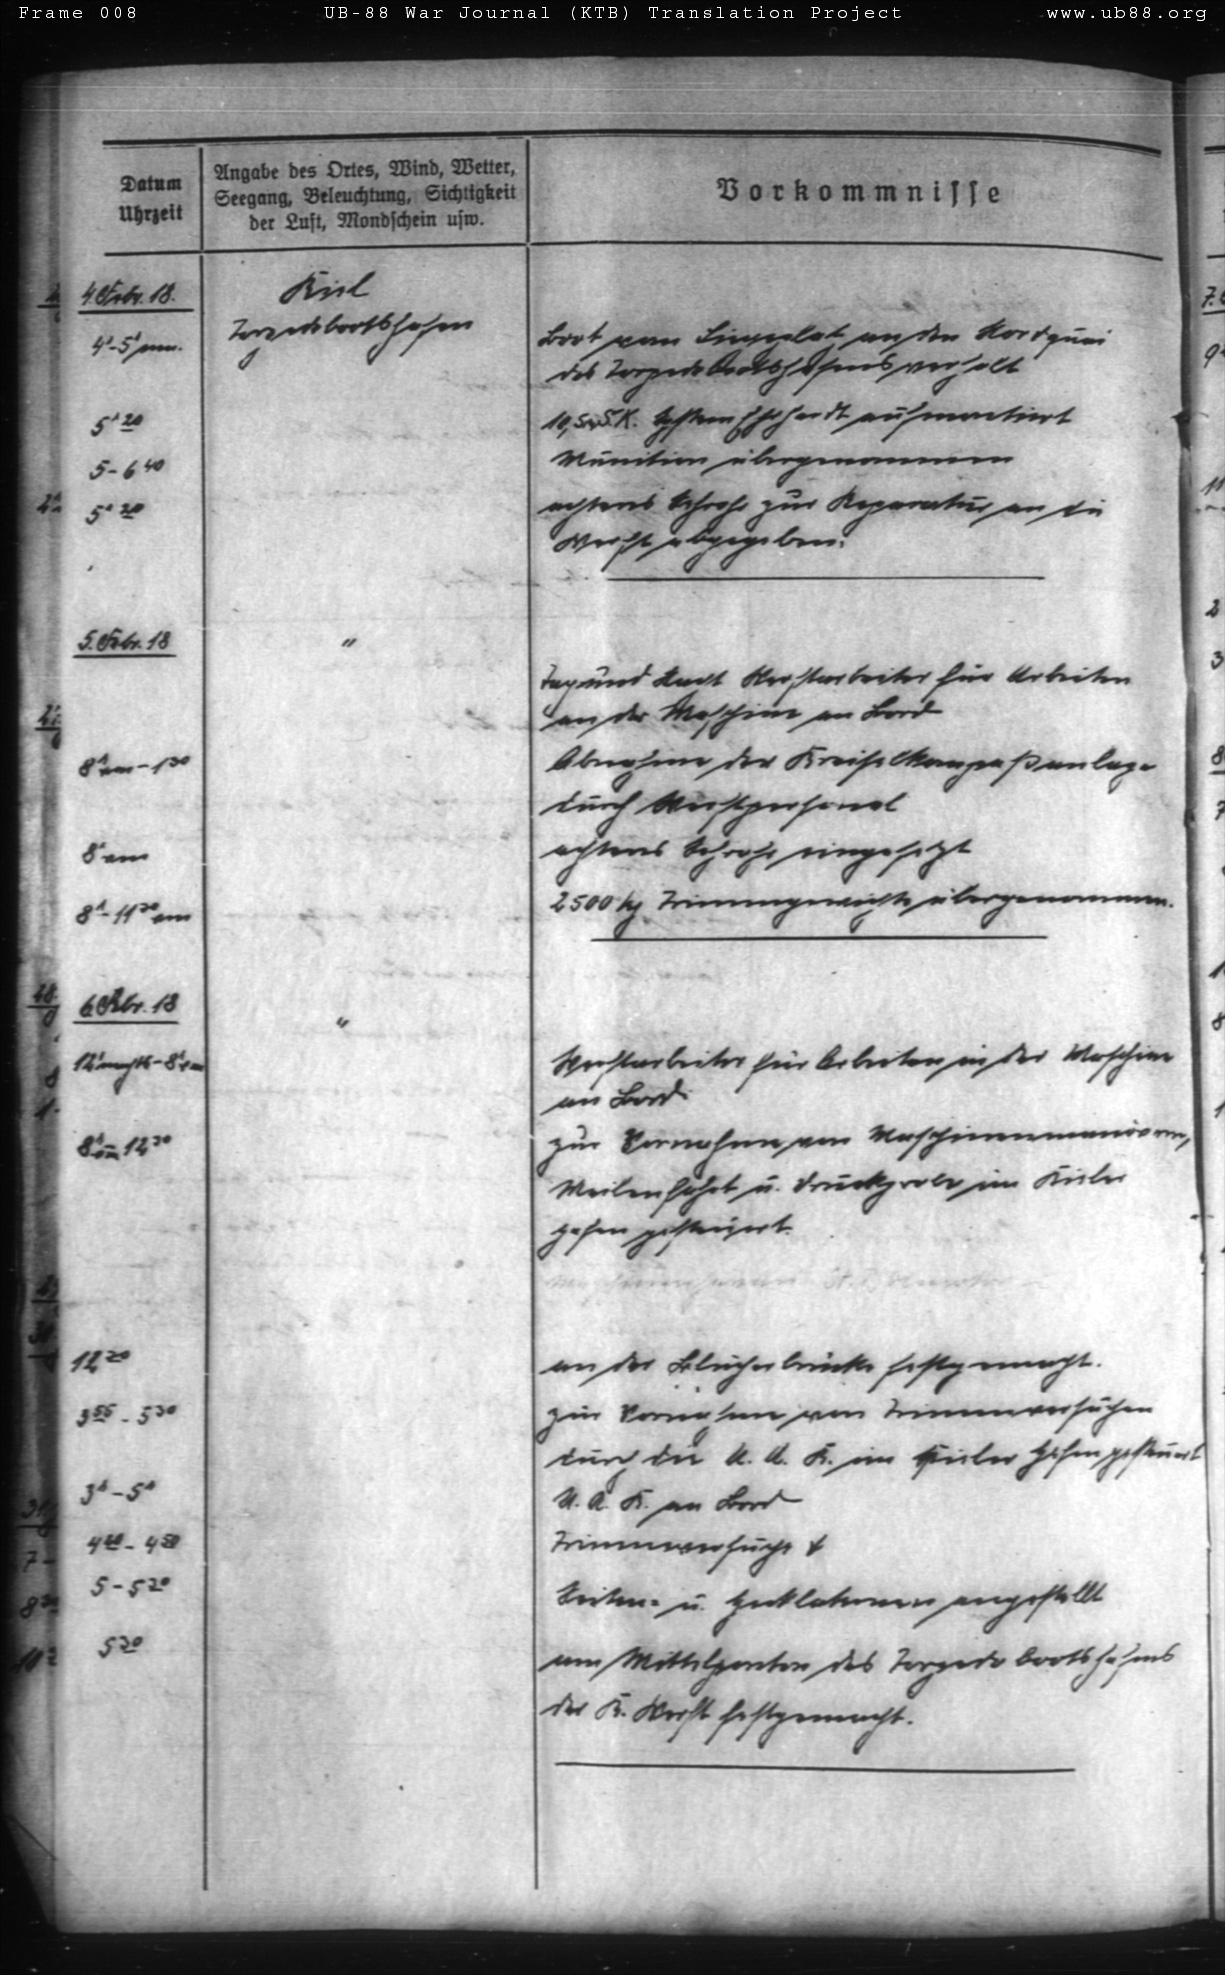 Frame 008 UB-88 War Journal (KTB) Translation Project www.ub88.org
Datum
Uhrzeit
Angabe des Ortes, Wind, Wetter,
Seegang, Beleuchtung, Sichtigkeit
der Luft, Mondschein usw.
Vorkommnisse
4. Febr. 18.
Kiel
Torpedobootshafen
4h-5h nm.
Boot vom Liegeplatz an den Nordquai
des Torpedobootshafens verholt
5h 20
10,5 cm S.K. System Ehrhardt aufmontiert
5-6 40
Munition übergenommen
5h 20
achteres Sehrohr zur Reparatur an die
Werft abgegeben.
5. Febr. 18
"
Tag und Nacht Werftarbeiter für Arbeiten
an der Maschine an Bord
8h vm - 1 30
Abnahme der Kreiselkompaßanlage
durch Werftpersonal
8h vm
achteres Sehrohr eingesetzt
8h - 11 30 vm
2500 kg Trimmgewichte übergenommen.
6. Febr. 18
"
12h nachts - 8h vm
Werftarbeiter für Arbeiten in der Maschine
an Bord.
8h vm 12 20
zur Vornahme von Maschinenmanövern,
Meilenfahrt u. Druckprobe im Kieler
Hafen gesteuert.
12 20
an der Blücherbrücke festgemacht.
3 55 - 5 30
zur Vornahme von Trimmversuchen
durch die U. A. K. im Kieler Hafen gesteuert
3h - 5h
U. A. K. an Bord
4 20 - 4 50
Trimmversuche
5 - 5 20
Seiten- u. Hecklaternen angestellt
5 30
am Mittelponton des Torpedobootshafens
der K. Werft festgemacht.